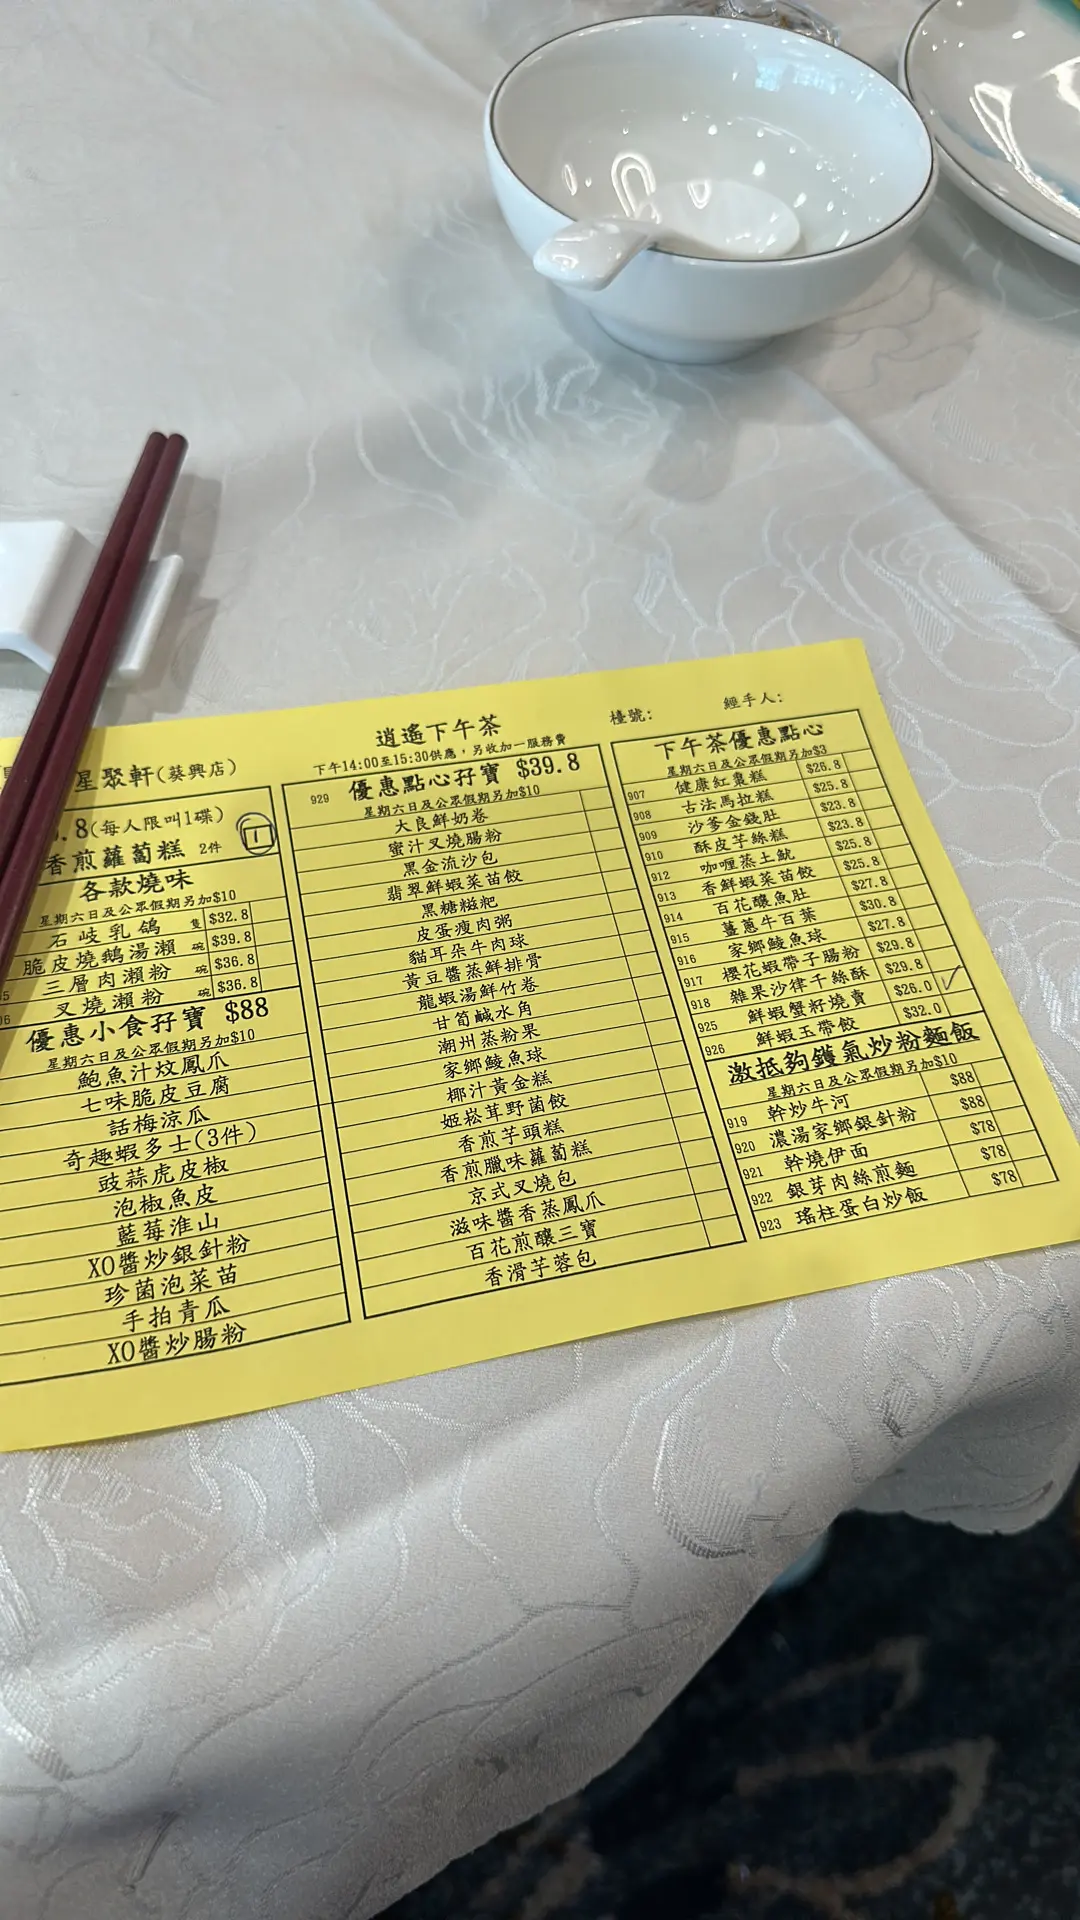 逍遙下午茶
檯號:
經手人:
下午14:00至15:30供應，另收加一服務費
星聚軒(葵興店)
.8(每人限叫1碟)
香煎蘿蔔糕 2件 1
各款燒味
星期六日及公眾假期另加$10
石岐乳鴿 隻 $32.8
脆皮燒鵝湯瀨 碗 $39.8
三層肉瀨粉 碗 $36.8
叉燒瀨粉 碗 $36.8
優惠小食孖寶 $88
星期六日及公眾假期另加$10
鮑魚汁炆鳳爪
七味脆皮豆腐
話梅涼瓜
奇趣蝦多士(3件)
豉蒜虎皮椒
泡椒魚皮
藍莓淮山
XO醬炒銀針粉
珍菌泡菜苗
手拍青瓜
XO醬炒腸粉
929 優惠點心孖寶 $39.8
星期六日及公眾假期另加$10
大良鮮奶卷
蜜汁叉燒腸粉
黑金流沙包
翡翠鮮蝦菜苗餃
黑糖糍粑
皮蛋瘦肉粥
貓耳朵牛肉球
黃豆醬蒸鮮排骨
龍蝦湯鮮竹卷
甘筍鹹水角
潮州蒸粉果
家鄉鯪魚球
椰汁黃金糕
姬崧茸野菌餃
香煎芋頭糕
香煎臘味蘿蔔糕
京式叉燒包
滋味醬香蒸鳳爪
百花煎釀三寶
香滑芋蓉包
下午茶優惠點心
星期六日及公眾假期另加$3
907 健康紅棗糕 $26.8
908 古法馬拉糕 $25.8
909 沙爹金錢肚 $23.8
910 酥皮芋絲糕 $23.8
912 咖喱蒸土魷 $25.8
913 香鮮蝦菜苗餃 $25.8
914 百花釀魚肚 $27.8
915 薑蔥牛百葉 $30.8
916 家鄉鯪魚球 $27.8
917 櫻花蝦帶子腸粉 $29.8
918 雜果沙律千絲酥 $29.8
925 鮮蝦蟹籽燒賣 $26.0 ✓
926 鮮蝦玉帶餃 $32.0
激抵夠鑊氣炒粉麵飯
星期六日及公眾假期另加$10
919 幹炒牛河 $88
920 濃湯家鄉銀針粉 $88
921 幹燒伊面 $78
922 銀芽肉絲煎麵 $78
923 瑤柱蛋白炒飯 $78